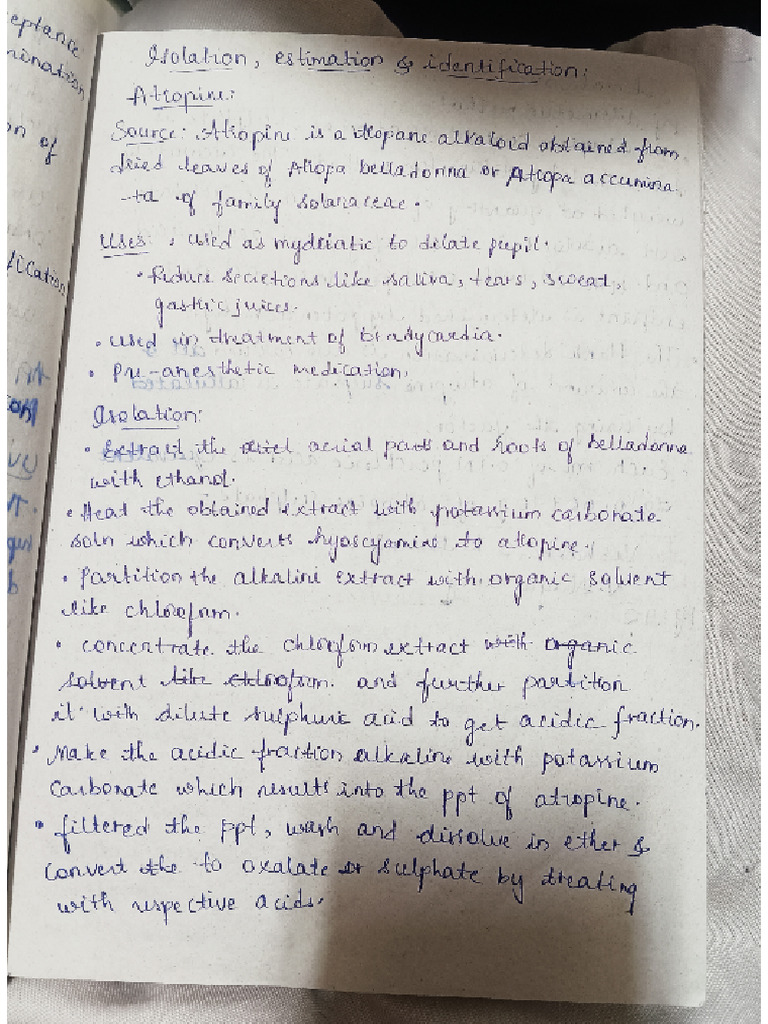 eptance
mination
on of
fication
Isolation, estimation & identification:
Atropine:
Source: Atropine is a tropane alkaloid obtained from
dried leaves of Atropa belladonna or Atropa accumina
-ta of family solanaceae.
Uses: used as mydriatic to dilate pupil.
• Reduce secretions like saliva, tears, sweat,
gastric juices.
• used in treatment of bradycardia.
• Pre-anesthetic medication.
Isolation:
• Extract the aerial parts and roots of belladonna
with ethanol.
• Heat the obtained extract with potassium carbonate
soln which converts hyoscyamine to atropine.
• Partition the alkaline extract with organic solvent
like chloroform.
• concentrate the chloroform extract with organic
solvent like chloroform. and further partition
it with dilute sulphuric acid to get acidic fraction.
• Make the acidic fraction alkaline with potassium
carbonate which results into the ppt of atropine.
• filtered the ppt, wash and dissolve in ether &
convert the to oxalate or sulphate by treating
with respective acids.